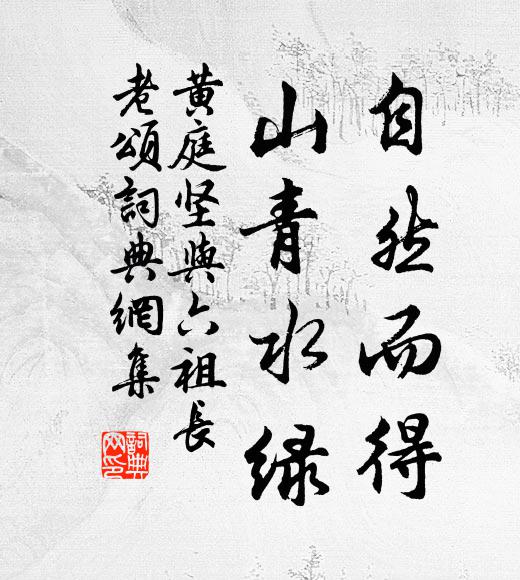 自然而得
山青水绿
黄庭坚與六祖長
老頌詞典網集
詞典
网印